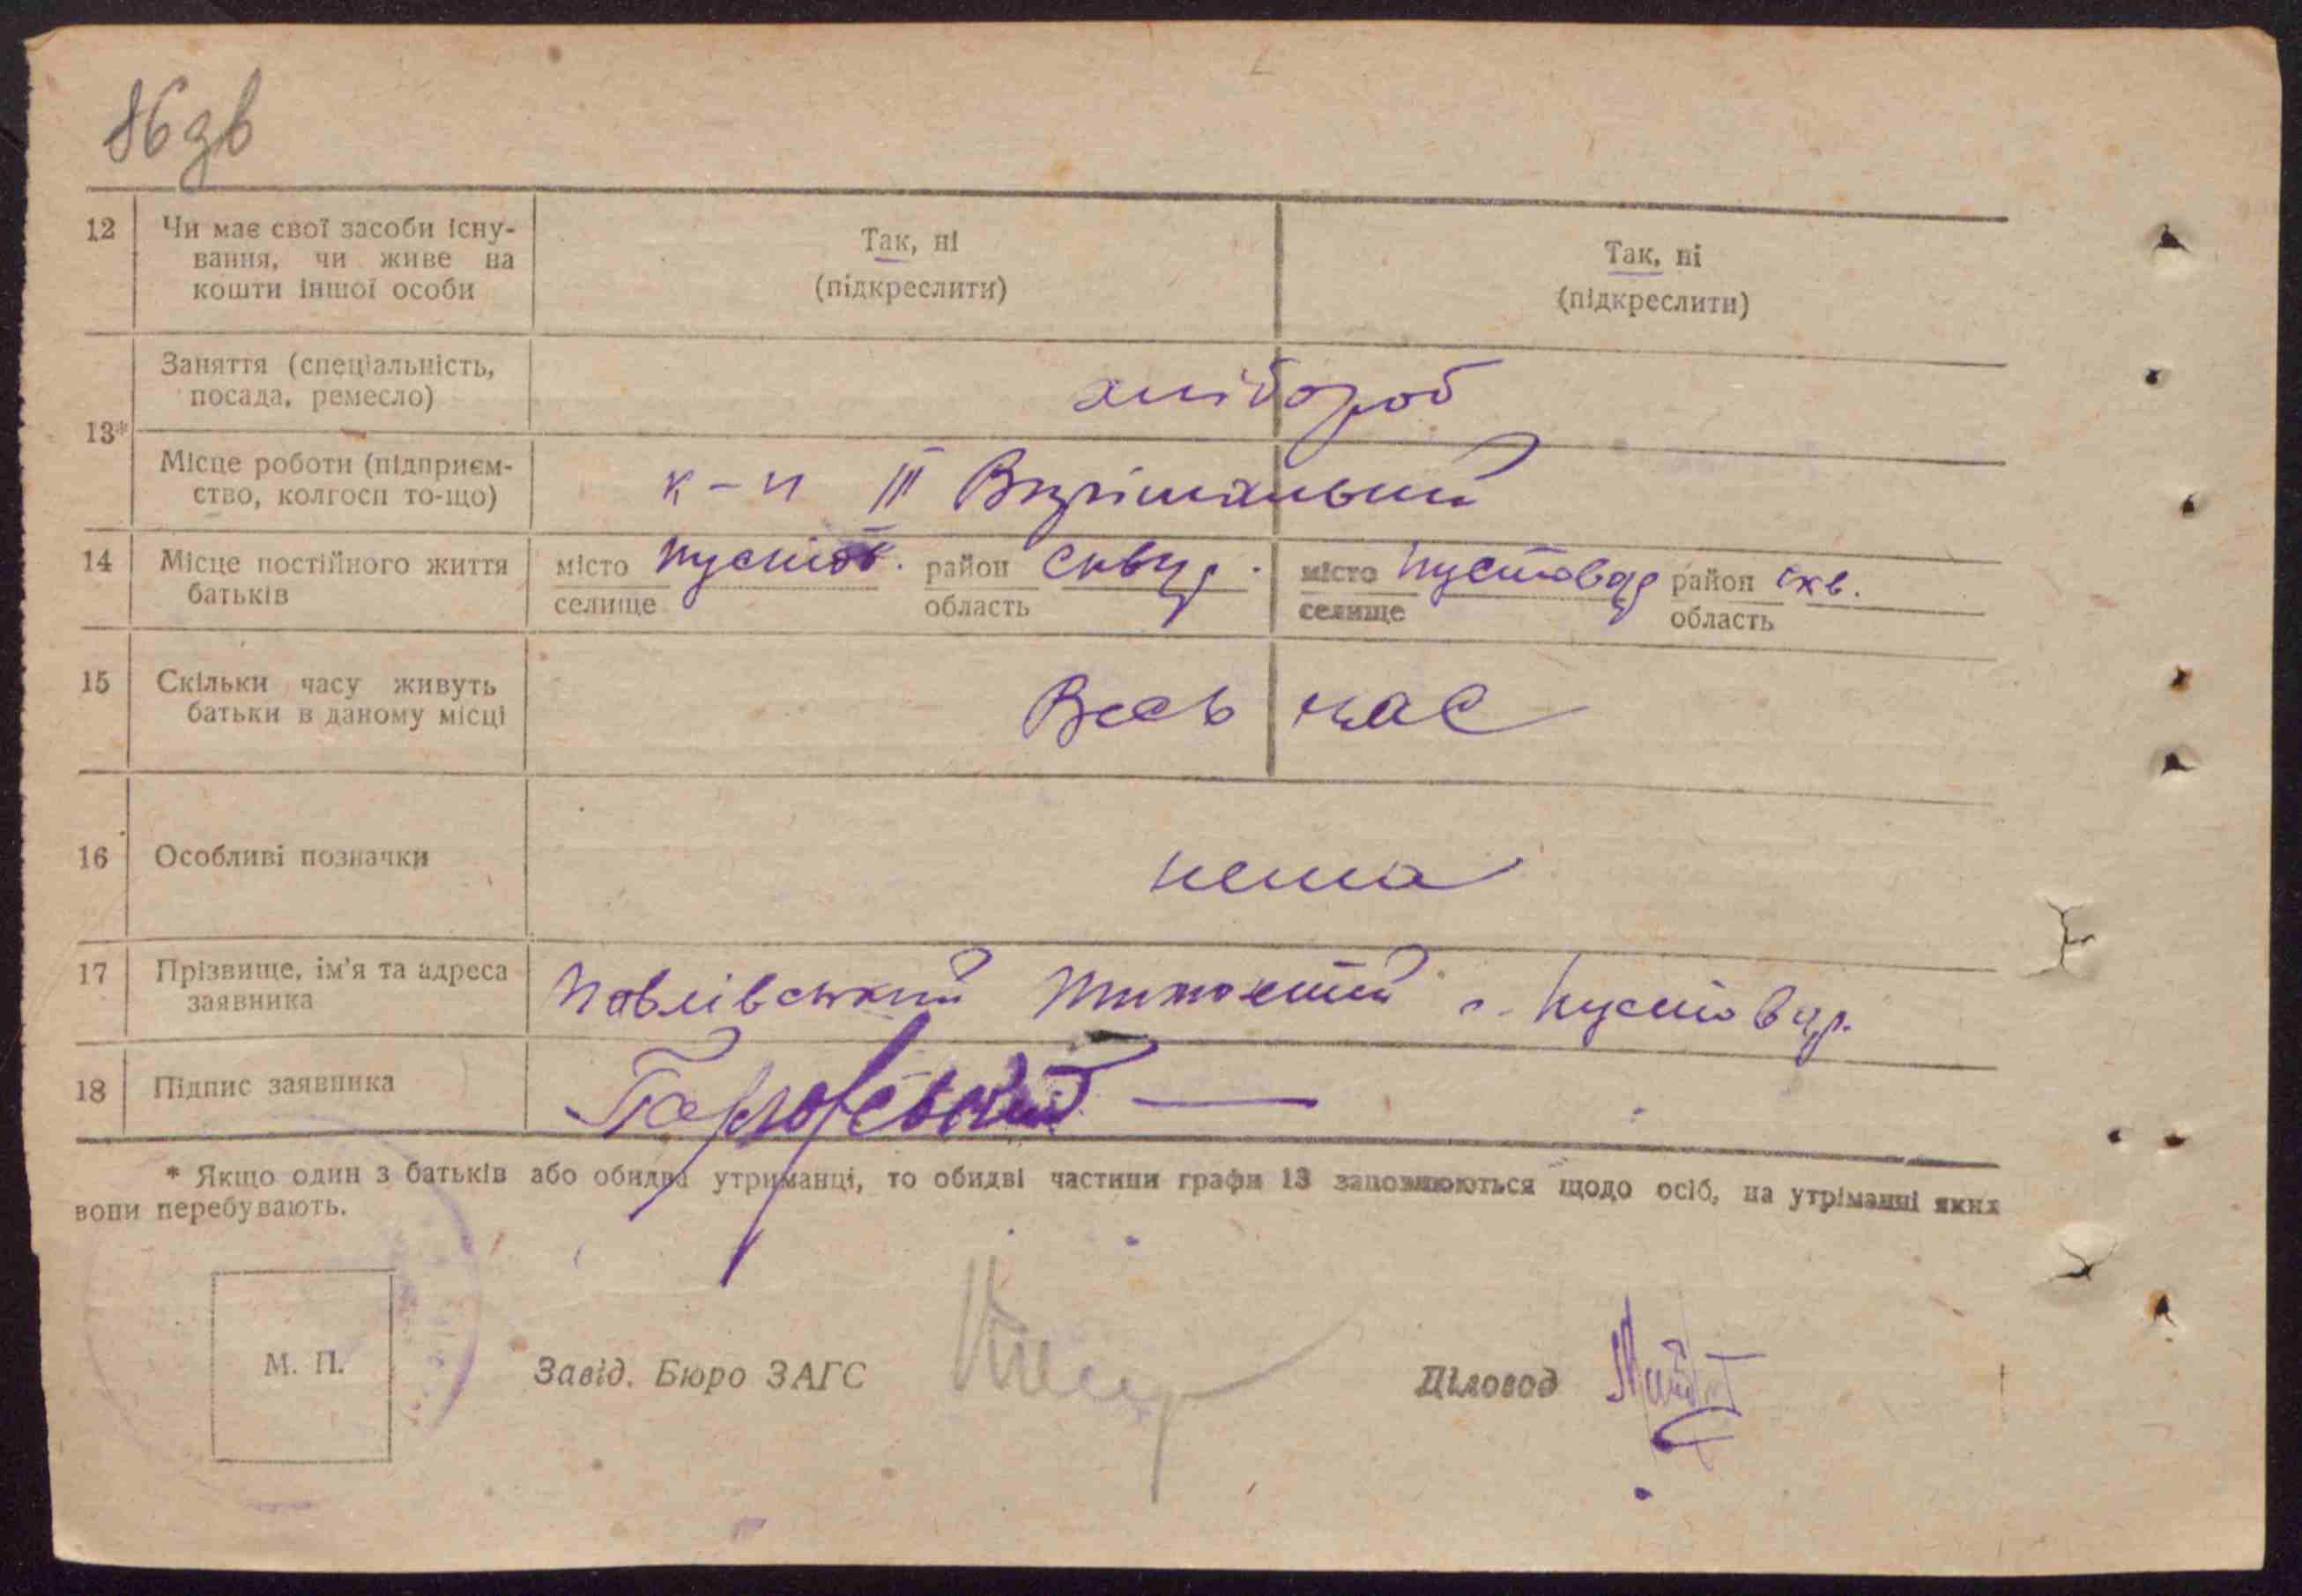 86 зв
12 Чи має свої засоби існу-
вання, чи живе на
кошти іншої особи
Так, ні
(підкреслити)
Так, ні
(підкреслити)
13*
Заняття (спеціальність,
посада, ремесло)
хлібороб
Місце роботи (підприєм-
ство, колгосп то-що)
к-п III Вирішальний
14 Місце постійного життя
батьків
місто Пустов. район Сквир.
селище область
місто Пустовар район скв.
селище область
15 Скільки часу живуть
батьки в даному місці
Весь час
16 Особливі позначки
нема
17 Прізвище, ім'я та адреса
заявника
Павлівський с. Пустовар.
18 Підпис заявника
* Якщо один з батьків або обидва утриманці, то обидві частини графи 13 заповнюються щодо осіб, на утріманні яких
вони перебувають.
М. П.
Завід. Бюро ЗАГС
Діловод